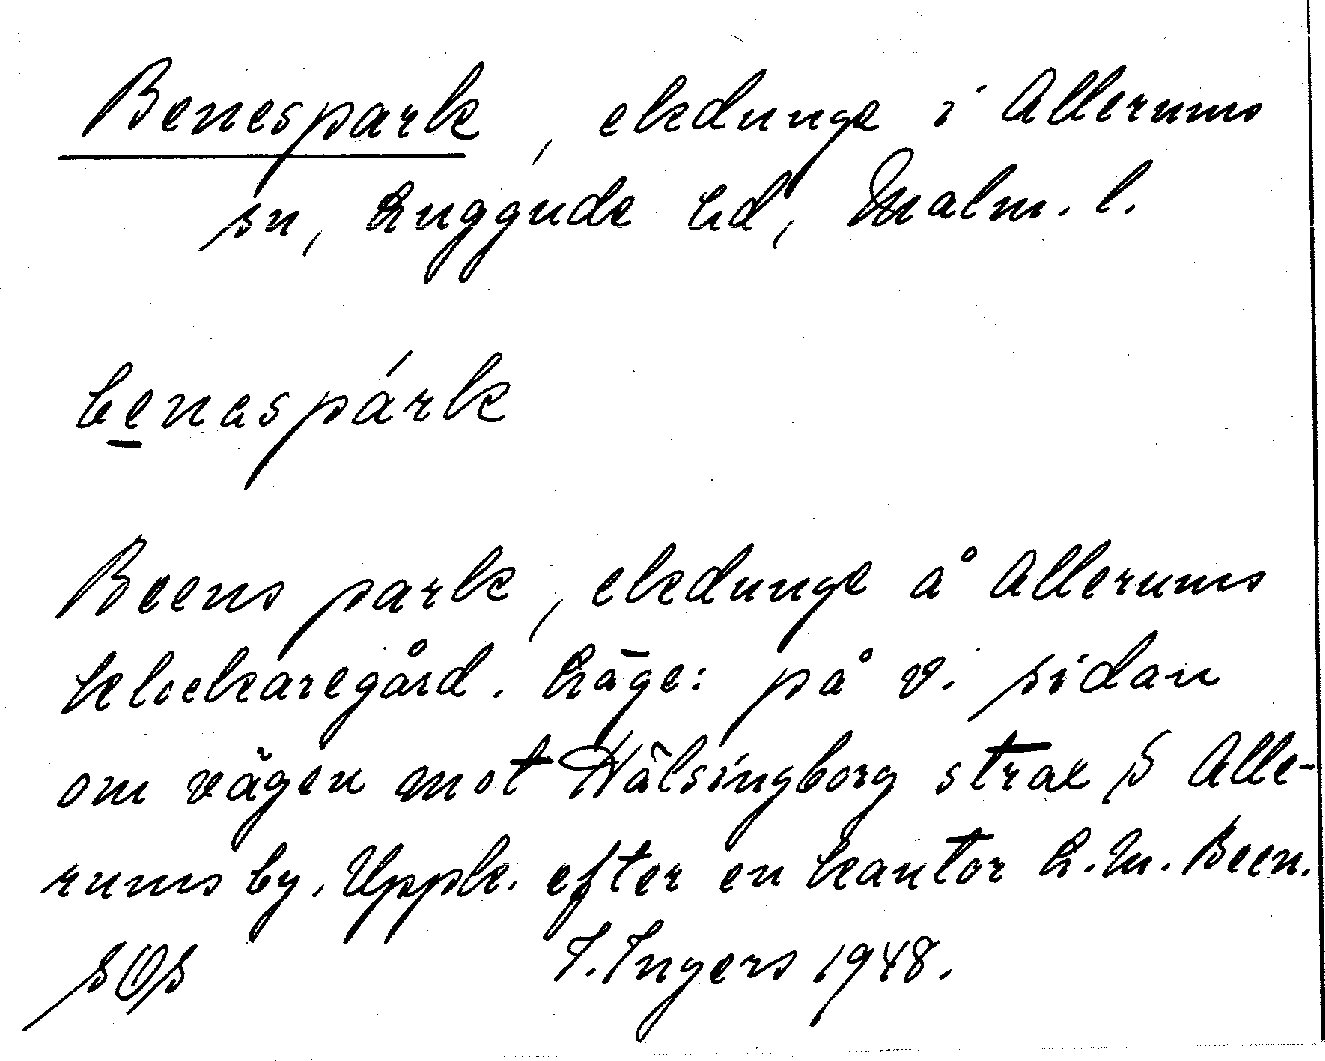 Benespark, ekdunge i Allerums
sn, Luggude hd, Malm. l.
benaspárk
Beens park, ekdunge å Allerums
klockaregård. Läge: på v. sidan
om vägen mot Hälsingborg strax S Alle-
rums by. Uppk. efter en kantor L. M. Been.
SOS I. Ingers 1948.